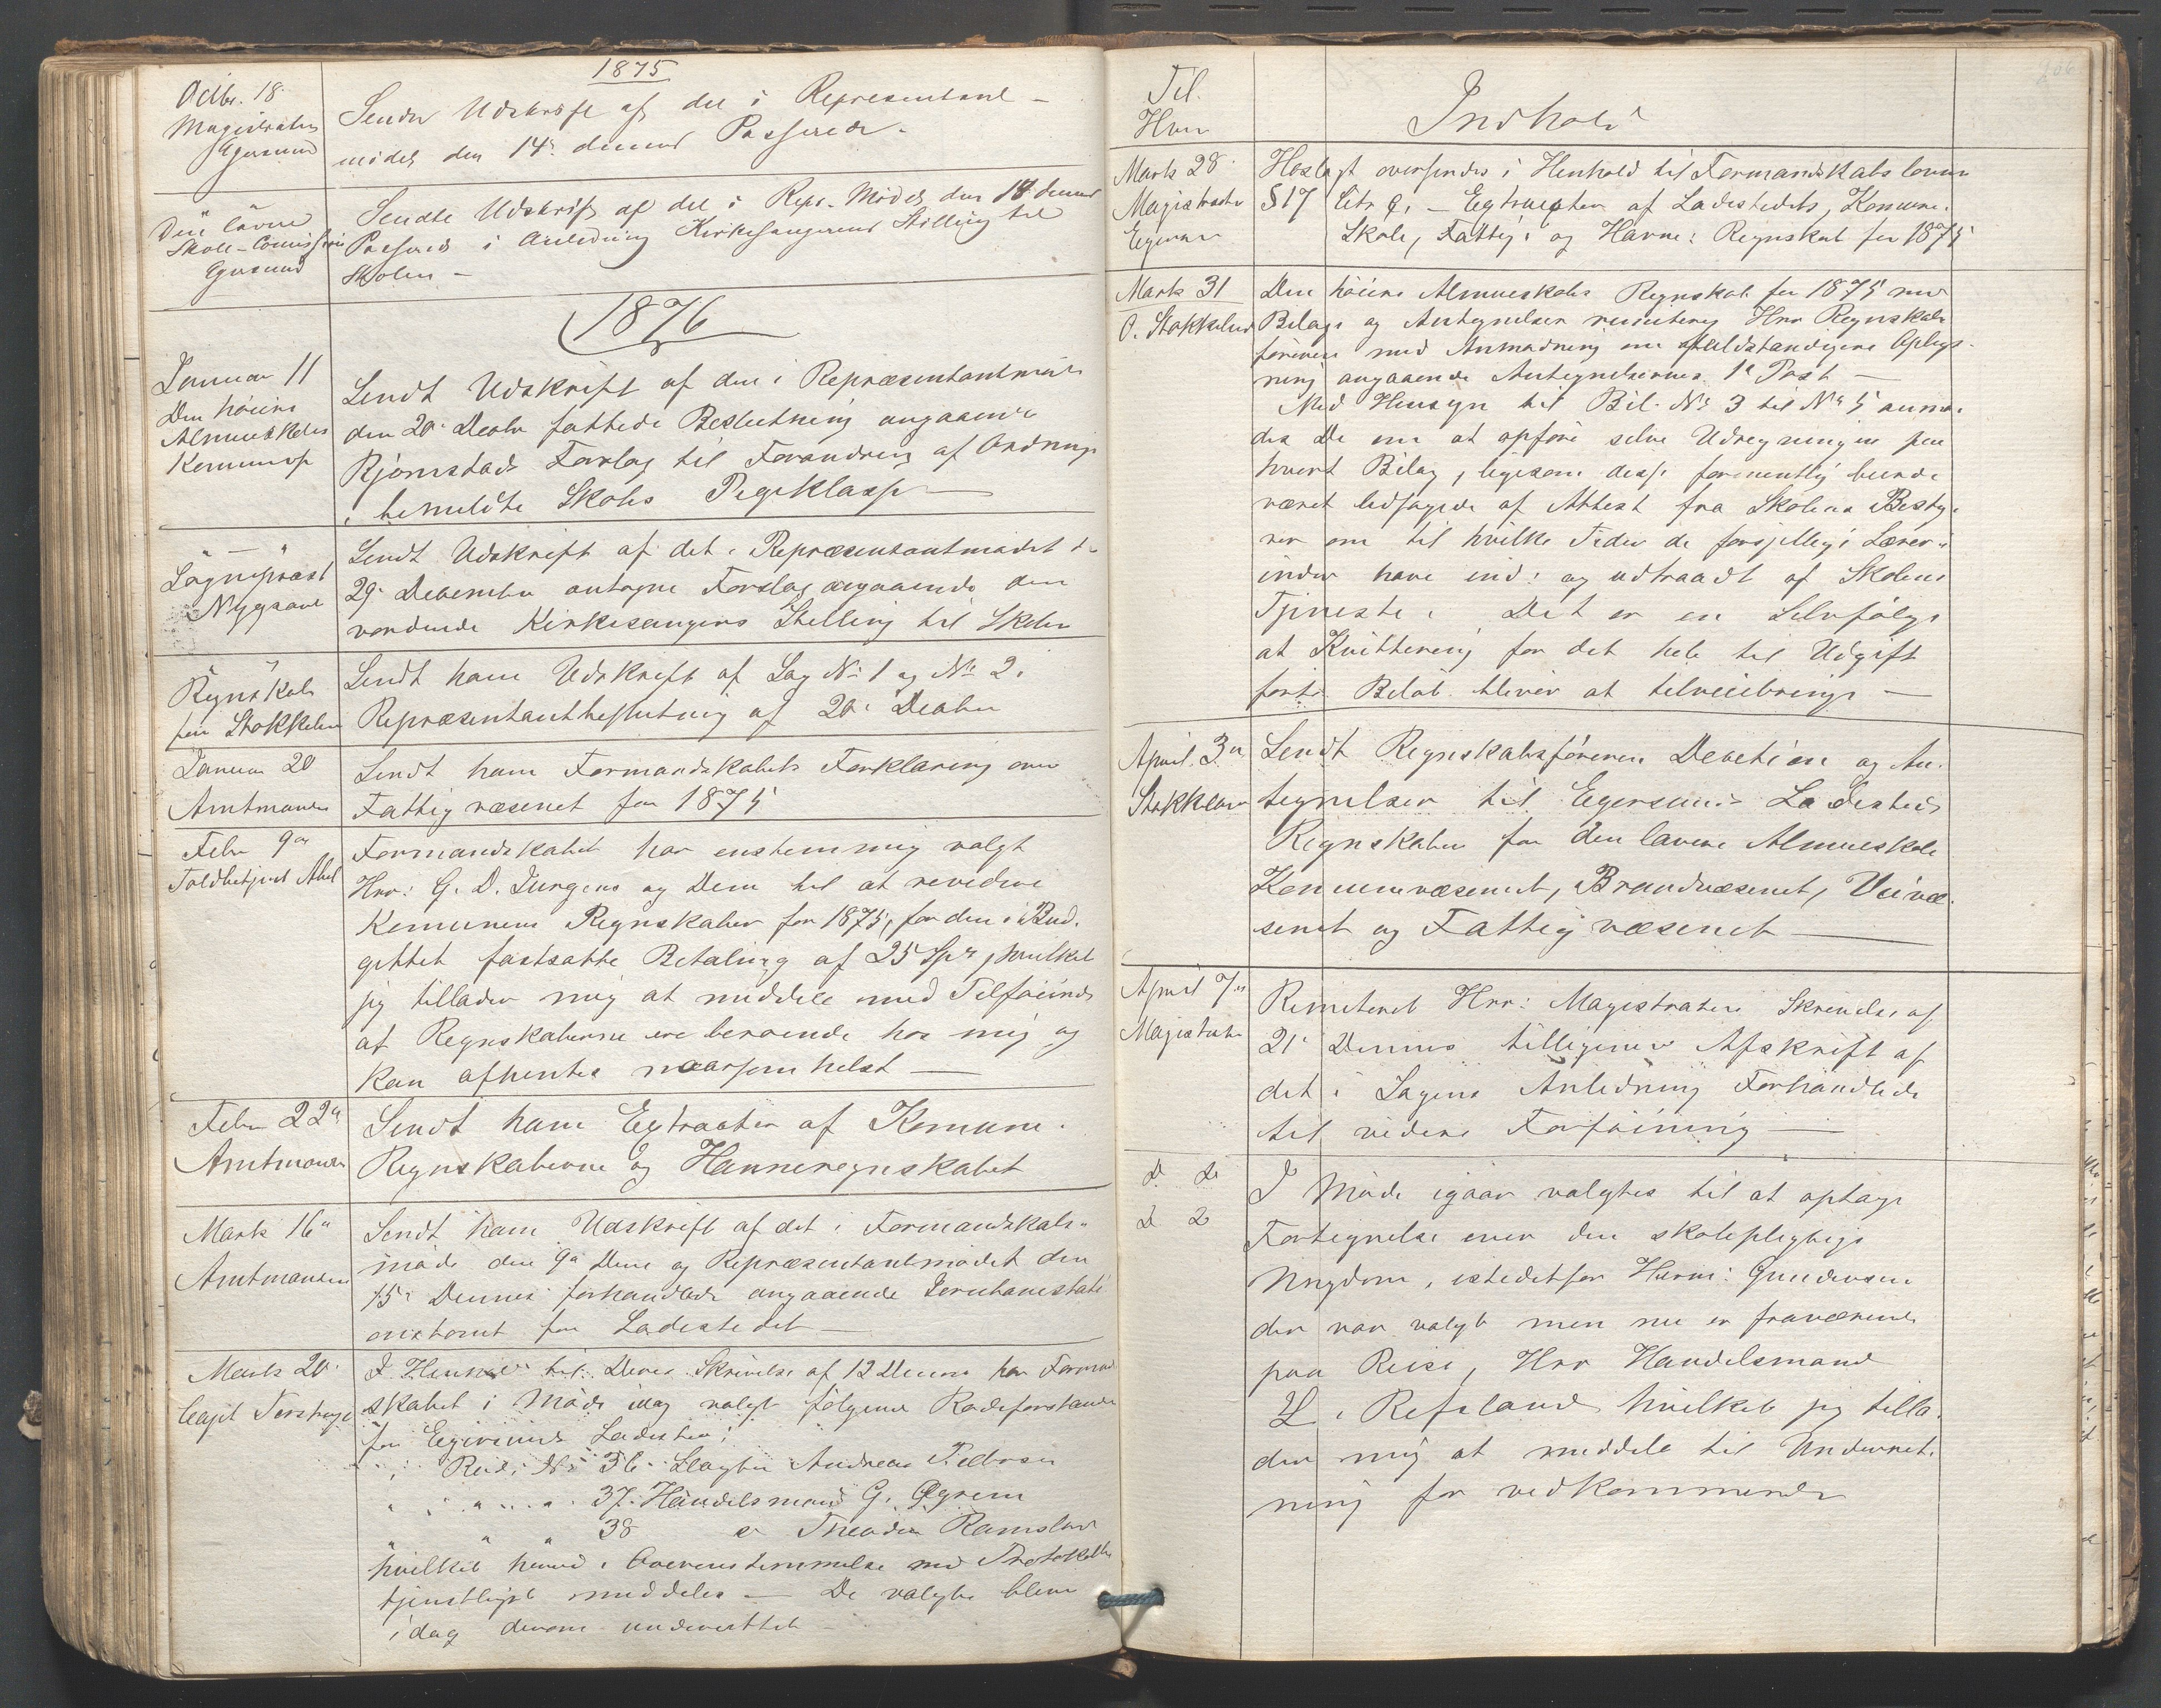 1875
Octbr. 18.
Magistraten
Egersund
Sendt Udskrift af det i Repræsentant-
mödet den 14de dennes Passerede.
Den lavere
Skole-Comission
Egersund
Sendte Udskrift af det i Repr. Mödet den 14 dennes
Passerede i Anledning Kirkesangerens Stilling til
Skolen -
1876
Januar 11
Den höiere
Almueskoles
Kommission
Sendt Udskrift af den i Repræsentantmöde
den 29. Decbr fattede Beslutning angaaende
Rjomstads Forslag til Forandring af Ordning
i bemeldte Skoles Pigeklasse
" — "
Sogneprest
Nygaard
Sendt Udskrift af det i Repræsentantmödet d.
29. December antagne Forslag angaaende den
vordende Kirkesangers Stilling til Skolen
Regnskabs
före Stokkeland
Sendt ham Udskrift af Sag No 1 og No 2.
Repræsentantbeslutning af 29. Decbr
Januar 20
Amtmanden
Sendt ham Formandskabets Forklaring over
Fattigvæsenet for 1875
Febr 9de
Toldbetjent Abel
Formandskabet har enstemmig valgt
Hrr. G. D. Jürgens og Dem til at revidere
Komunens Regnskaber for 1875, for den i Bud-
gettet fastsatte Betaling af 25 Spd, hvilket
jeg tillader mig at meddele med Tilföiende
at Regnskaberne ere beroende hos mig og
kan afhentes naarsomhelst —
Febr 22de
Amtmanden
Sendt ham Extracter af Komune-
Regnskaberne og Havneregnskabet
Marts 16de
Amtmanden
Sendt ham Udskrift af det i Formandskabs-
möde den 9de Dens og Repræsentantmödet den
15de Dennes forhandlede angaaende Jernbanestati-
onstomt for Ladestedet —
Marts 20.
Capit
I Henhold til Deres Skrivelse af 12 Dennes har Formand
skabet i Möde idag valgt fölgende Rodeforstandere
for Egersunds Ladested:
i Rode No 36. Andreas Pedersen
" " " 37. Handelsmand G.
" " 38 " Theodor Ramsland
hvilket herved i Overensstemmelse med Protokollen
tjenstligst meddeles — De valgte bleve
idag derom underrettet -
Til
Hvem
Indhold
Marts 28.
Magistraten
Egersund
Hoslagt oversendes i Henhold til Formandskabsloven
§ 17 Litr — Extracter af Ladestedets, Komune-
Skole, Fattig- og Havne- Regnskab for 1875
Marts 31
O. Stokkeland
Den höiere Almueskoles Regnskab for 1875 med
Bilage og Antegnelser remitteres Hrr Regnskabs
föreren med Anmodning om fuldstændigere Oplys-
ning angaaende Antegnelsernes 1ste Post —
Med Hensyn til Bil. No 3 til No 5 anmo-
des De om at opföre selve Udregningen paa
hvert Bilag, ligesom disse formentlig burde
været ledsagede af Attest fra Skolens Besty-
rer om til hvilke Tider de forskjellige Lærer-
inder have ind- og udtraadt af Skolens
Tjeneste. Det er en Selvfölge
at Kvittering for det hele til Udgift
förte Belöb bliver at tilveiebringe —
April 3de
Stokkeland
Sendt Regnskabsföreren Decetion og An-
tegnelser til Egersunds Ladesteds
Regnskaber for den lavere Almueskole
Komunevæsenet, Brandvæsenet, Veivæ-
senet og Fattigvæsenet —
April 7de
Magistraten
Remiteret Hrr. Magistratens Skrivelse af
21de Dennes tilligemed Afskrift af
det i Sagens Anledning Forhandlede
til videre Forföining —
D. Do
D. 2
I Möde igaar valgtes til at optage
Fortegnelse over den skolepligtige
Ungdom, istedetfor Herm. Gundersen
der var valgt men nu er fraværende
paa Reise, Hrr Handelsmand
Refsland hvilket jeg tilla-
der mig at meddele til Underret-
ning for vedkommende